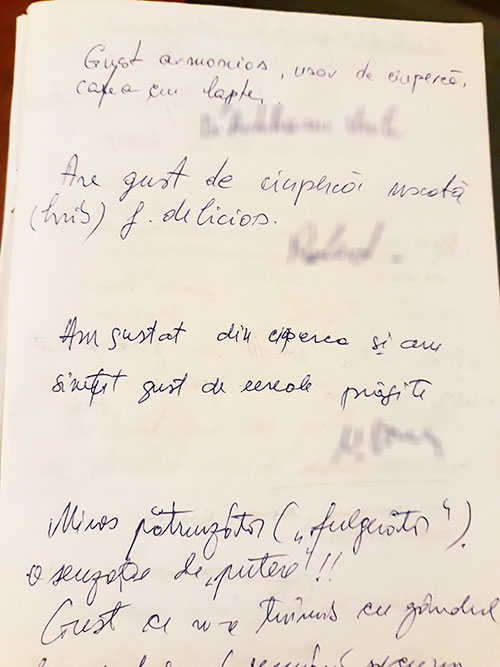 Gust armonios, ușor de ciupercă,
cafea cu lapte,
Are gust de ciupercă uscată
(hrib) f. delicios.
Am gustat din ciuperca și am
simțit gust de cereale prăjite
Miros pătrunzător („fulgerător“).
o senzație de „putere“!!
Gust ce m-a trimis cu gândul